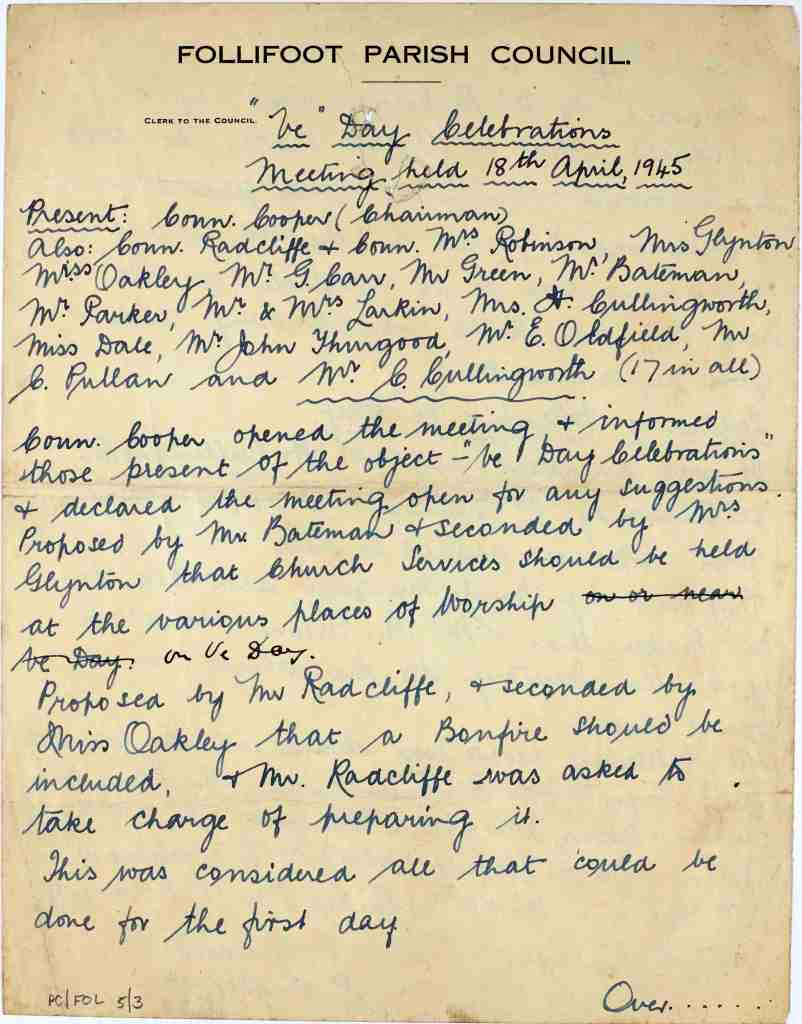 FOLLIFOOT PARISH COUNCIL.
CLERK TO THE COUNCIL.
"Ve" Day Celebrations
Meeting held 18th April, 1945
Present: Coun. Cooper (Chairman)
Also: Coun. Radcliffe & Coun. Mrs Robinson, Mrs Glynton
Miss Oakley, Mr G. Carr, Mr Green, Mr Bateman,
Mr Parker, Mr & Mrs Larkin, Mrs. A. Cullingworth,
Miss Dale, Mr John Thurgood, Mr E. Oldfield, Mr
C. Pullan and Mr C. Cullingworth (17 in all)
Coun. Cooper opened the meeting & informed
those present of the object - "Ve Day Celebrations"
& declared the meeting open for any suggestions.
Proposed by Mr. Bateman & seconded by Mrs
Glynton that Church Services should be held
at the various places of Worship on or near
Ve Day. on Ve Day.
Proposed by Mr Radcliffe, & seconded by
Miss Oakley that a Bonfire should be
included, & Mr. Radcliffe was asked to
take charge of preparing it.
This was considered all that could be
done for the first day
Over......
PC/FOL 5/3